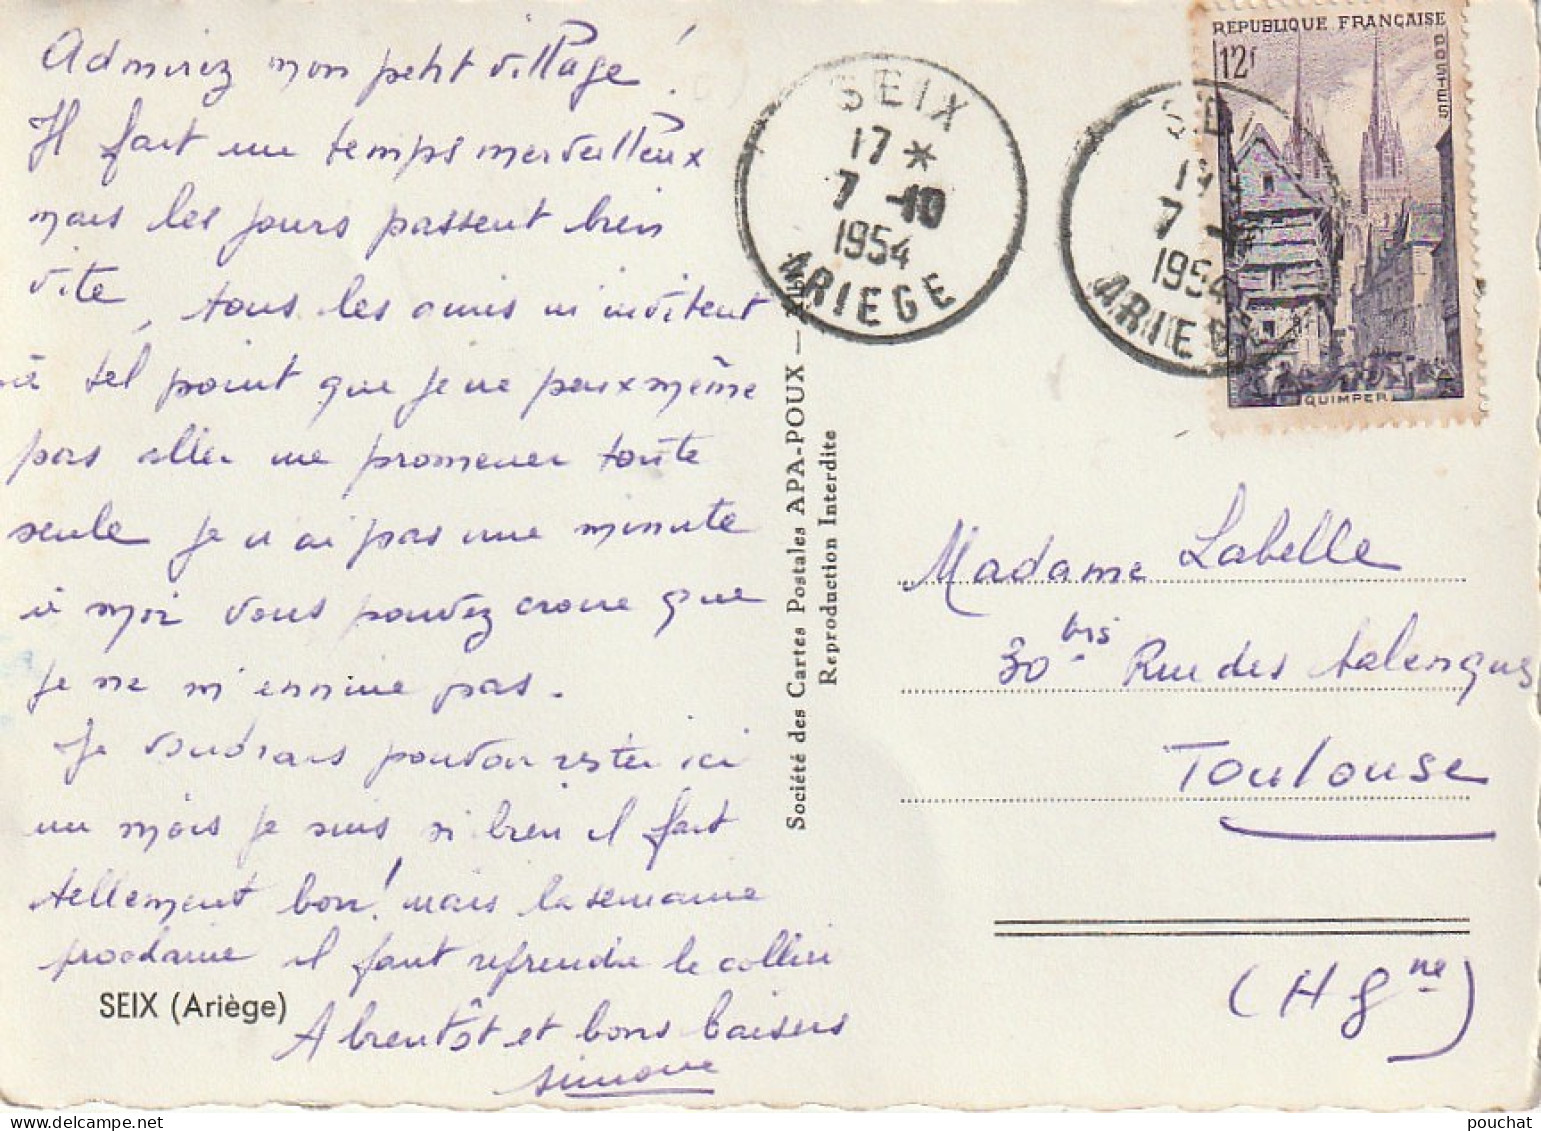 Admirez mon petit village !
Il fait un temps merveilleux
mais les jours passent bien
vite, tous les amis m'invitent
à tel point que je ne peux même
pas aller me promener toute
seule je n'ai pas une minute
à moi vous pouvez croire que
je ne m'ennuie pas.
Je voudrais pouvoir rester ici
un mois je suis si bien il fait
tellement bon! mais la semaine
prochaine il faut reprendre le collier
A bientôt et bons baisers
Simone
SEIX (Ariège)
Société des Cartes Postales APA-POUX —
Reproduction Interdite
SEIX
17 *
7 -10
1954
ARIEGE
SEI
7
1954
ARIEGE
REPUBLIQUE FRANÇAISE
POSTES
12F
QUIMPER
Madame Labelle
30 bis Rue des
Toulouse
(H Gne)
pouchat